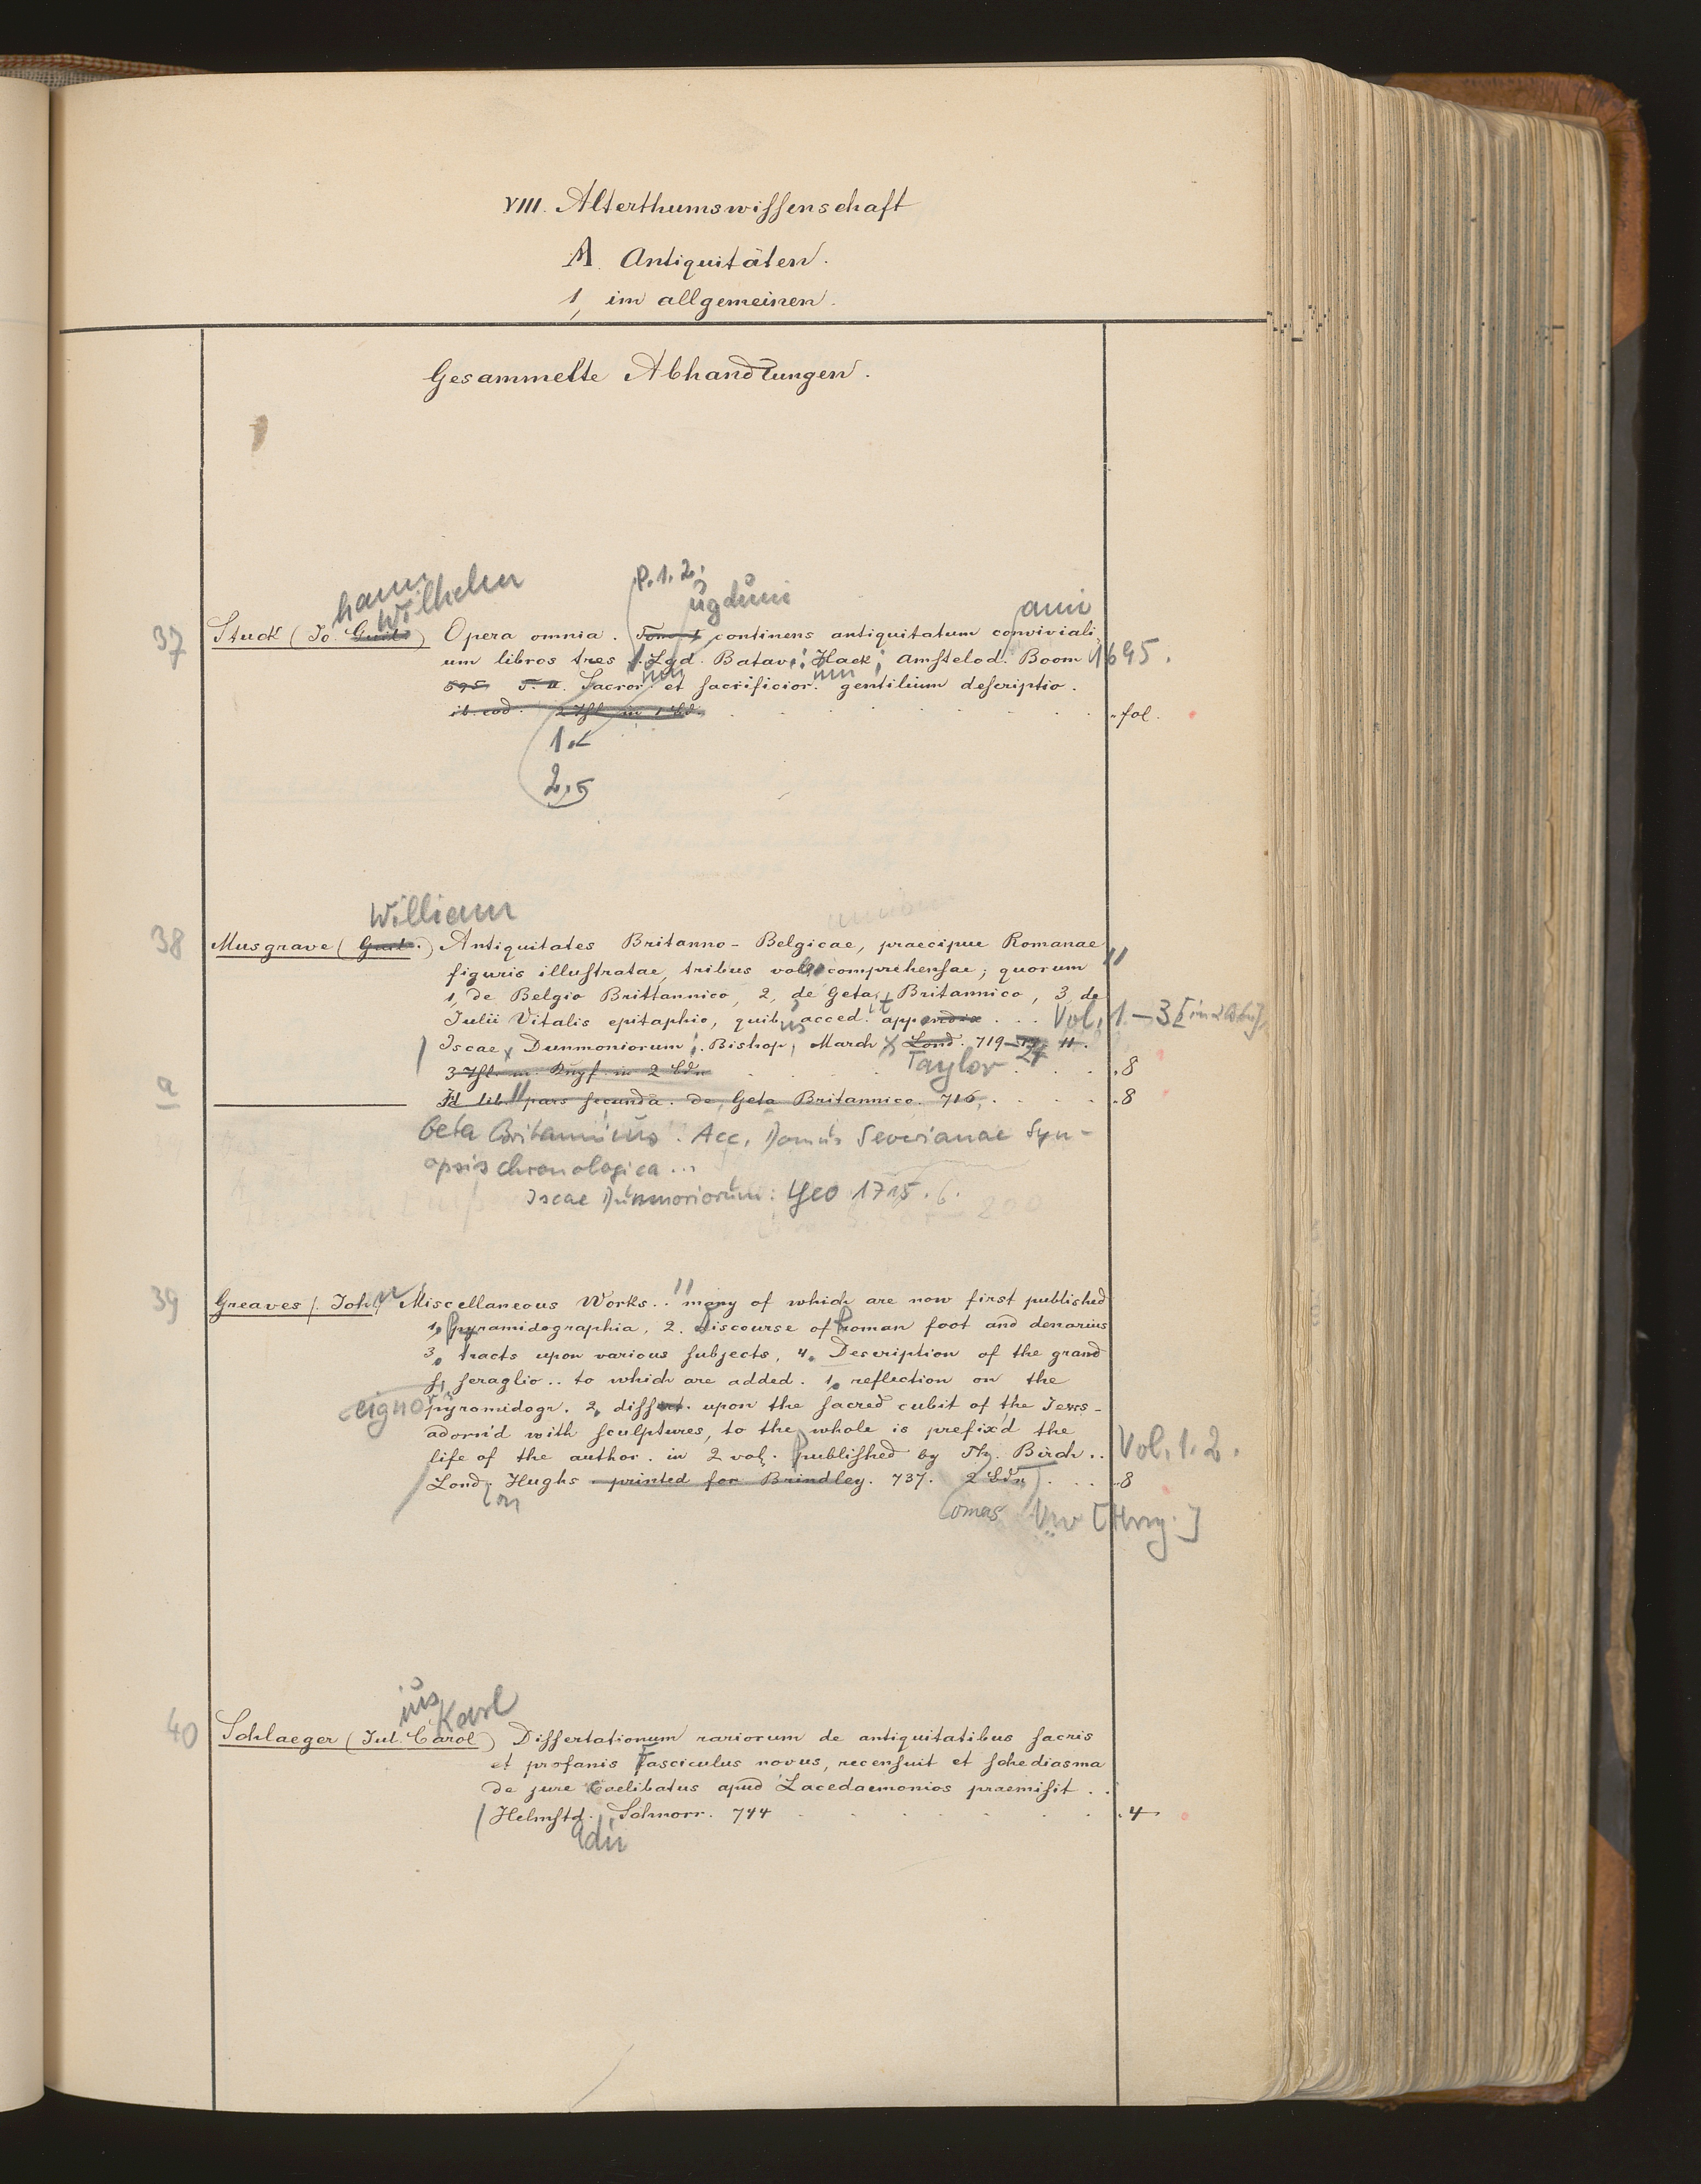 VIII. Alterthumswissenschaft
A. Antiquitäten.
1, im allgemeinen.
Gesammelte Abhandlungen.
hann Wilhelm P. 1. 2. ugduni ami
37 Stuck (Jo. Guil.) Opera omnia. Tom. I continens antiquitatum convivali
um libros tres. Lgd. Batav: Hack; Amstelod. Boom 1695.
695 T. II. Sacror. et sacrificior. gentilium descriptio.
ib. eod. 2 Thl. in 1 Bd. fol.
1.
2.
William
38 Musgrave (Guil.) Antiquitates Britanno-Belgicae, praecipue Romanae
figuris illustratae, tribus vol. comprehensae; quorum
1, de Belgio Brittannico, 2, de Geta Britannico, 3, de
Julii Vitalis epitaphio, quib. acced. appendix ... Vol. 1-3 [in 2 Bdn],
Iscae Dunmoniorum; Bishop, March Lond. 719-
3 Thl. in 2 Bdn Taylor .8
a Id lib. pars secunda. de Geta Britannico. 716. .8
Geta Britannicus. Acc. Domus Severianae Syn-
opsis chronologica...
Iscae Dunmoriorum: Yeo 1715.
39 Greaves (John) Miscellaneous Works.. many of which are now first published
1, Pyramidographia, 2. discourse of Roman foot and denarius
3, tracts upon various subjects, 4. Description of the grand
seraglio.. to which are added. 1. reflection on the
eignor pyramidogr. 2, dissert. upon the sacred cubit of the Jews-
adorn'd with sculptures, to the whole is prefix'd the
life of the author. in 2 vol. published by Th. Birch.. Vol. 1. 2.
Lond. Hughs printed for Brindley. 737. 2 Bdn .8
on omas
ius Karl
40 Schlaeger (Jul. Carol) Dissertationum rariorum de antiquitatibus sacris
et profanis Fasciculus novus, recensuit et schediasma
de jure Caelibatus apud Lacedaemonios praemisit..
Helmstd. Schnorr. 744 .4